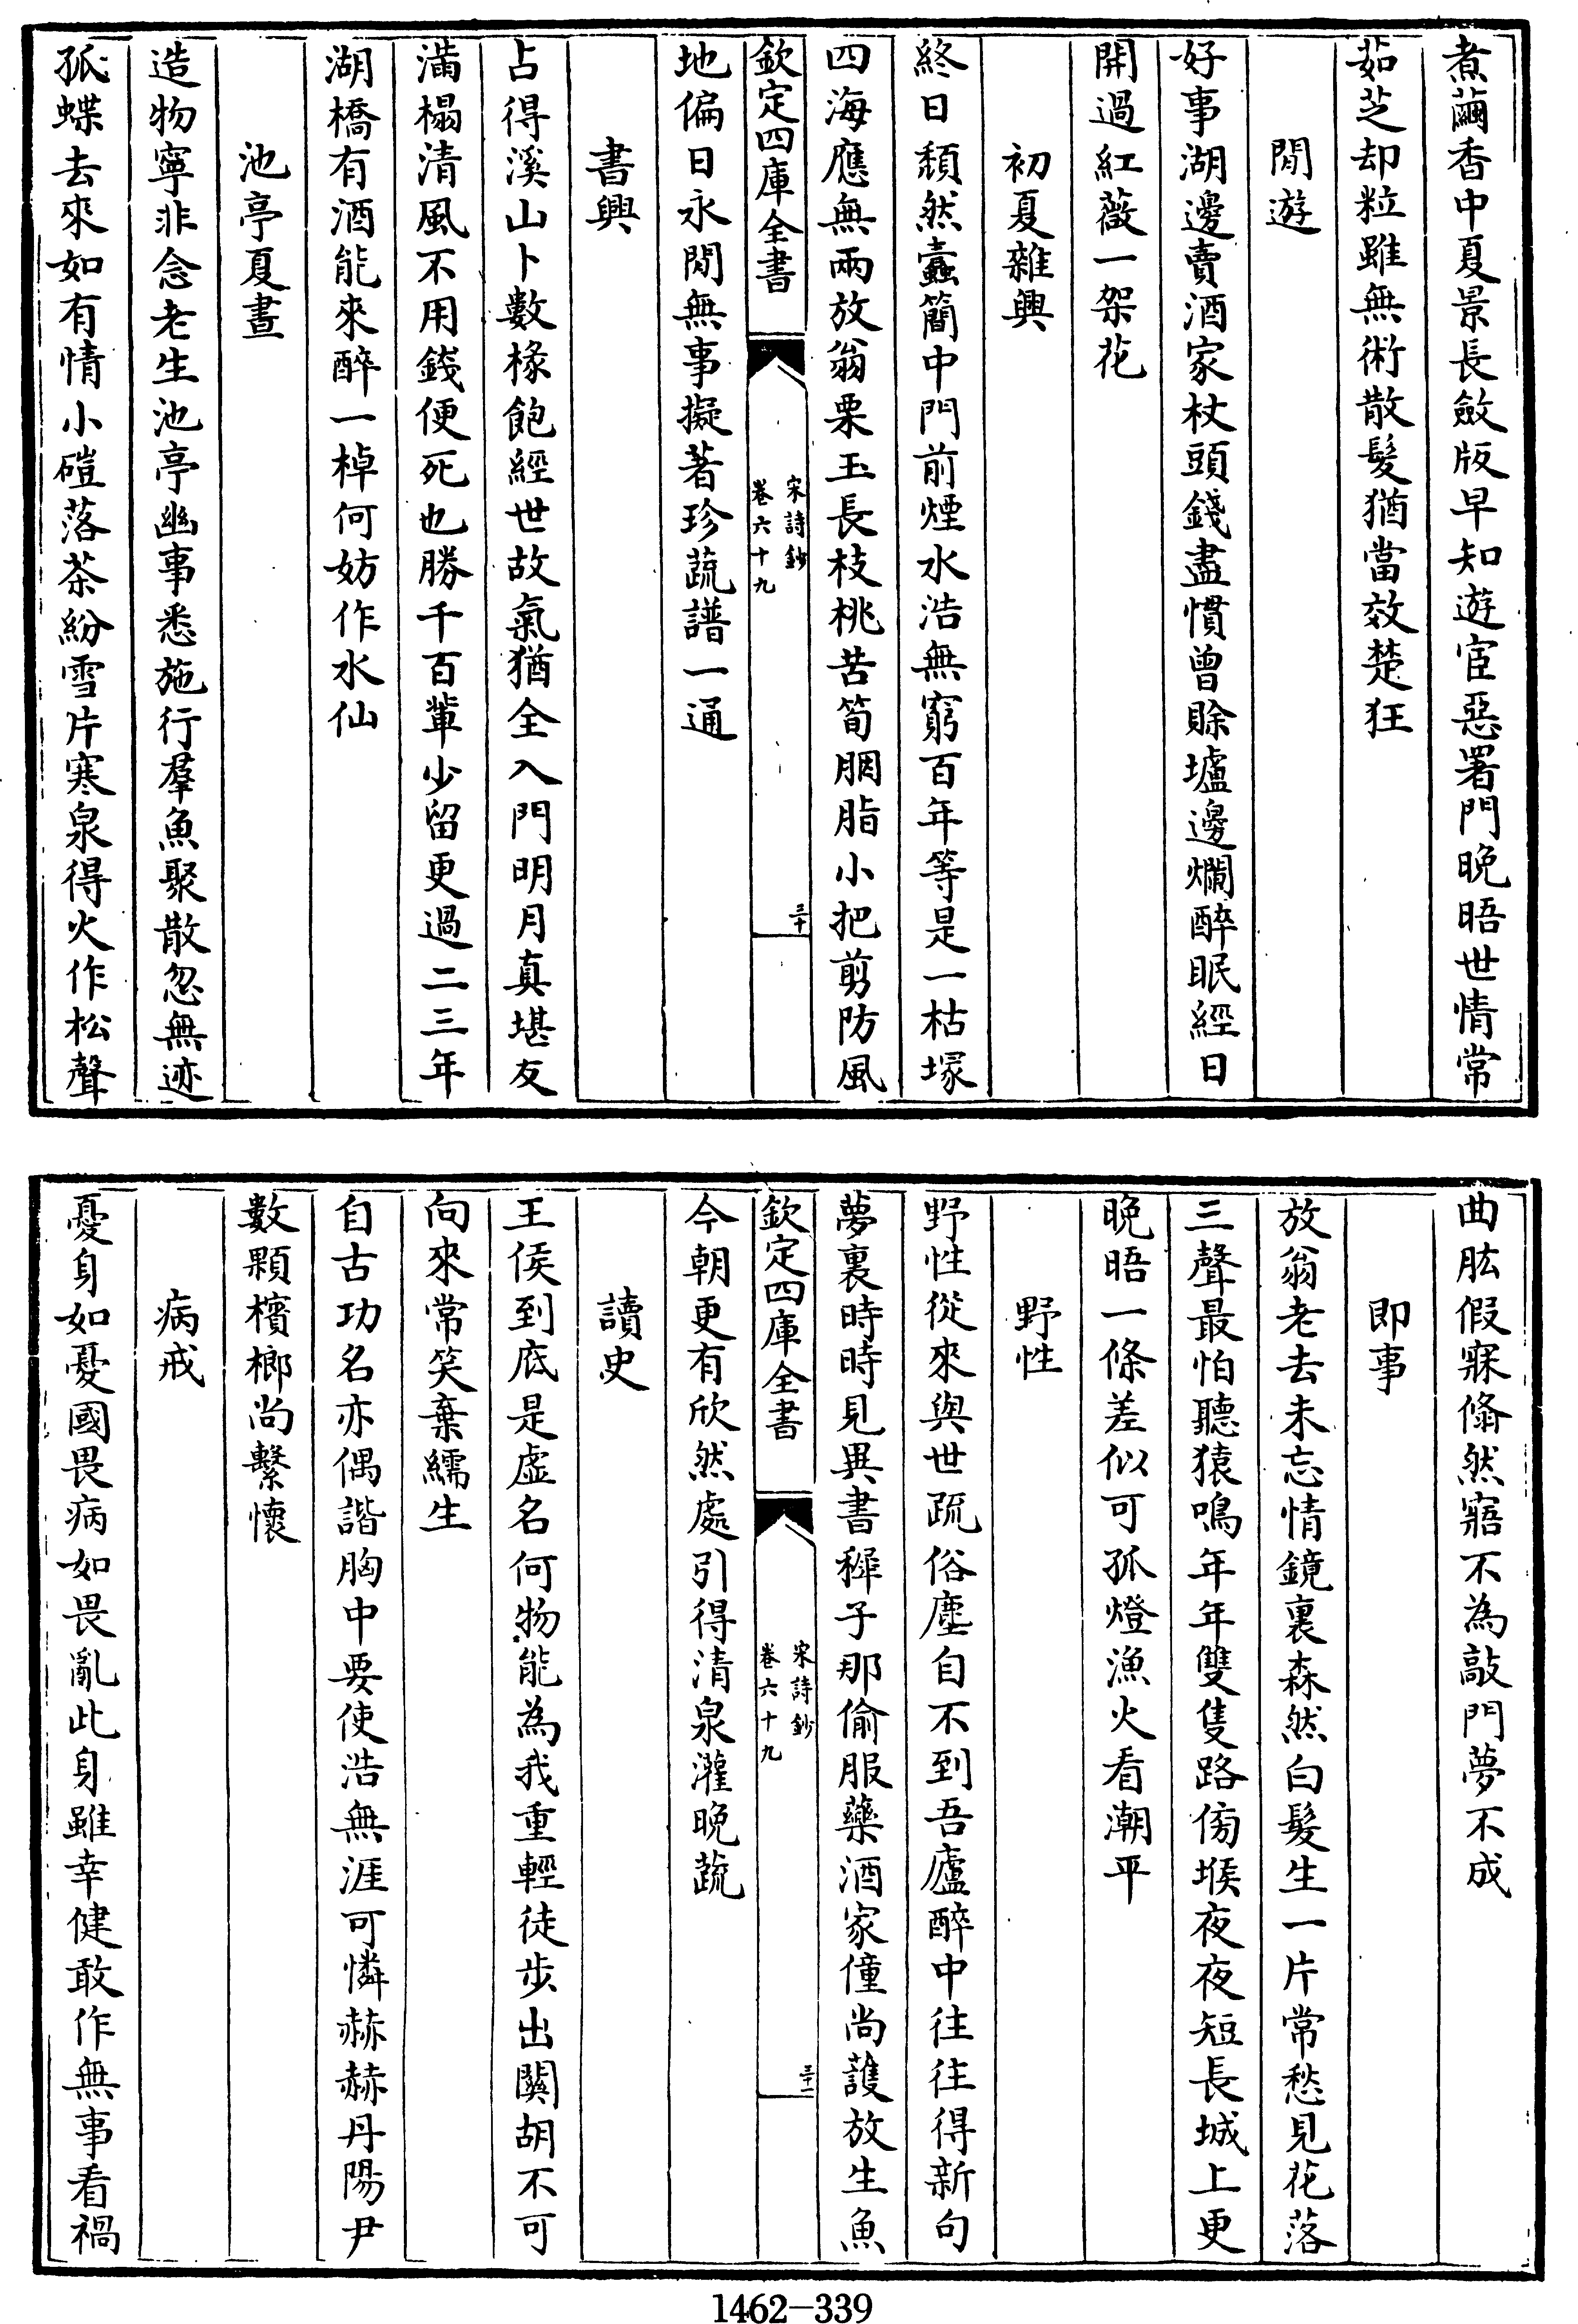 煮繭香中夏景長斂版早知遊宦惡署門晚晤世情常
茹芝却粒雖無術散髮猶當效楚狂
閒遊
好事湖邊賣酒家杖頭錢盡慣曾賒壚邊爛醉眠經日
開過紅薇一架花
初夏雜興
終日頹然蠹簡中門前煙水浩無窮百年等是一枯塚
四海應無兩放翁栗玉長枝桃苦筍胭脂小把剪防風
欽定四庫全書
宋詩鈔
卷六十九
三十
地偏日永閒無事擬著珍蔬譜一通
書興
占得溪山卜數椽飽經世故氣猶全入門明月真堪友
滿榻清風不用錢便死也勝千百輩少留更過二三年
湖橋有酒能來醉一棹何妨作水仙
池亭夏晝
造物寧非念老生池亭幽事悉施行羣魚聚散忽無迹
孤蝶去來如有情小磑落茶紛雪片寒泉得火作松聲
曲肱假寐翛然寤不為敲門夢不成
即事
放翁老去未忘情鏡裏森然白髮生一片常愁見花落
三聲最怕聽猿鳴年年雙隻路傍堠夜夜短長城上更
晚晤一條差似可孤燈漁火看潮平
野性
野性從來與世疏俗塵自不到吾廬醉中往往得新句
夢裏時時見異書稺子那偷服藥酒家僮尚護放生魚
欽定四庫全書
宋詩鈔
卷六十九
三十一
今朝更有欣然處引得清泉灌晚蔬
讀史
王侯到底是虛名何物能為我重輕徒步出關胡不可
向來常笑棄繻生
自古功名亦偶諧胸中要使浩無涯可憐赫赫丹陽尹
數顆檳榔尚繫懷
病戒
憂身如憂國畏病如畏亂此身雖幸健敢作無事看禍
1462-339